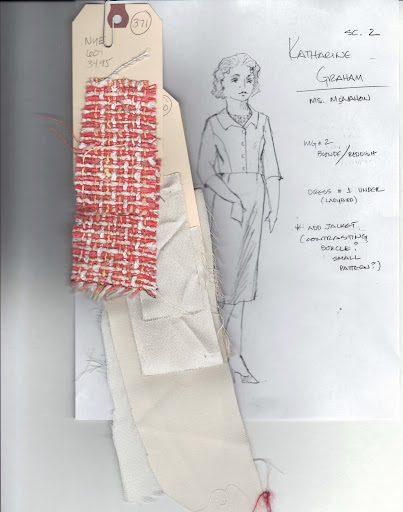 371
SC. 2
NYE
60"
34.95
KATHARINE
GRAHAM
MS. McMAHON
WIG # 2
BLONDE/REDDISH
DRESS # 1 UNDER
(LADYBIRD)
* ADD JACKET.
(CONTRASTING
BOUCLE?
SMALL
PATTERN?)